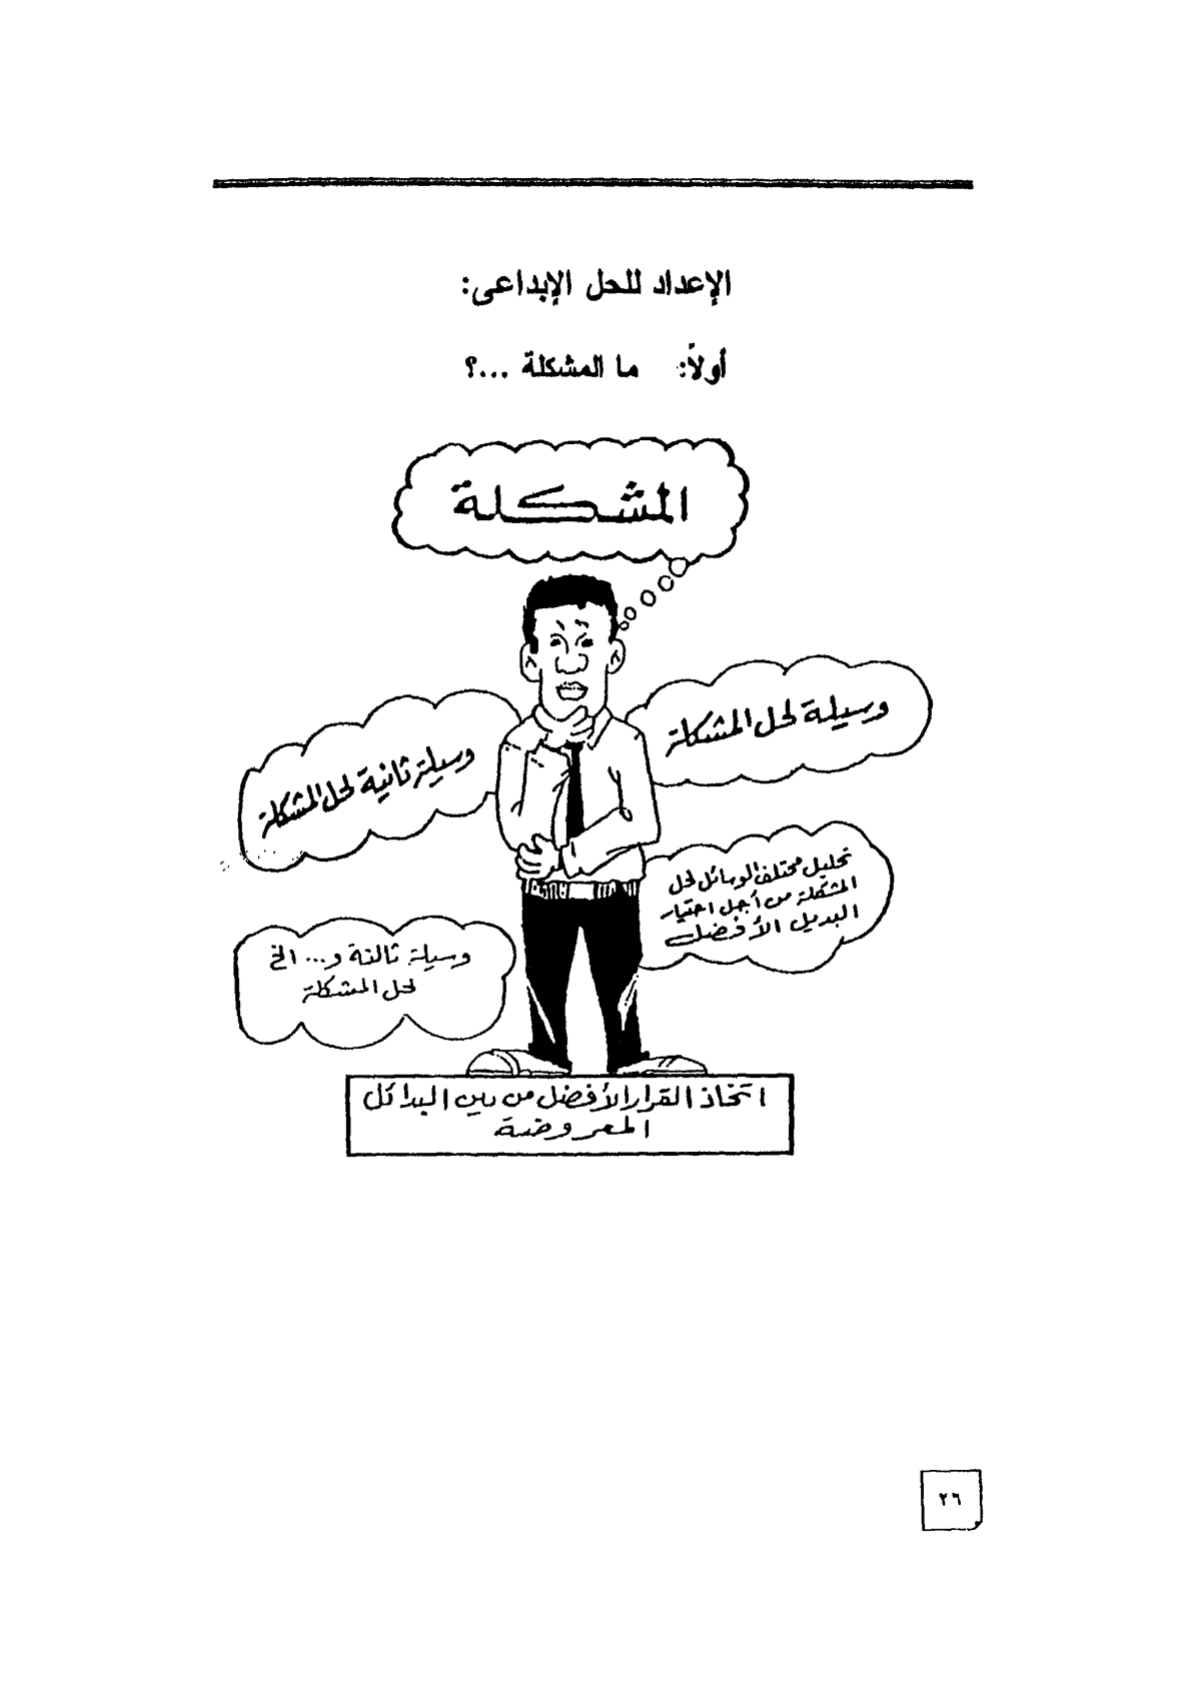 الإعداد للحل الإبداعى:
أولاً: ما المشكلة ...؟
المشكلة
وسيلة لحل المشكلة
وسيلة ثانية لحل المشكلة
تحليل مختلف الوسائل لحل
المشكلة من أجل اختيار
البديل الأفضل
وسيلة ثالثة و... الخ
لحل المشكلة
اتخاذ القرار الأفضل من بين البدائل
المعروضة
٢٦